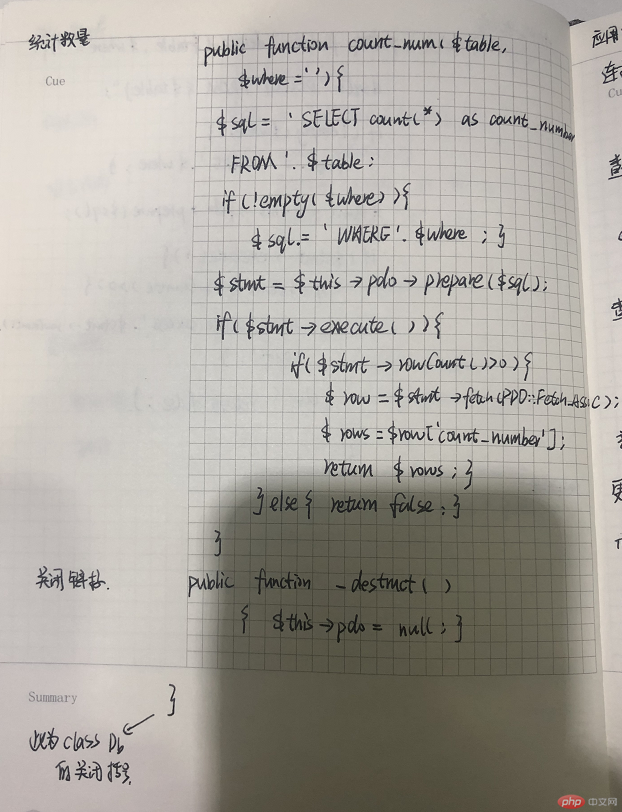 统计数量
Cue
public function count_num($table,
$where=''){
$sql = 'SELECT count(*) as count_number
FROM'.$table;
if(!empty($where)){
$sql.= 'WHERE'.$where ; }
$stmt = $this→pdo→prepare($sql);
if($stmt→execute()){
if($stmt→rowCount()>0){
$row = $stmt→fetch(PDO::Fetch_Assoc);
$rows = $row['count_number'];
return $rows ; }
}else{ return false ; }
}
关闭链接.
public function _destruct()
{ $this→pdo = null ; }
Summary
}
此为class Db
的关闭括号
应用
php 中文网